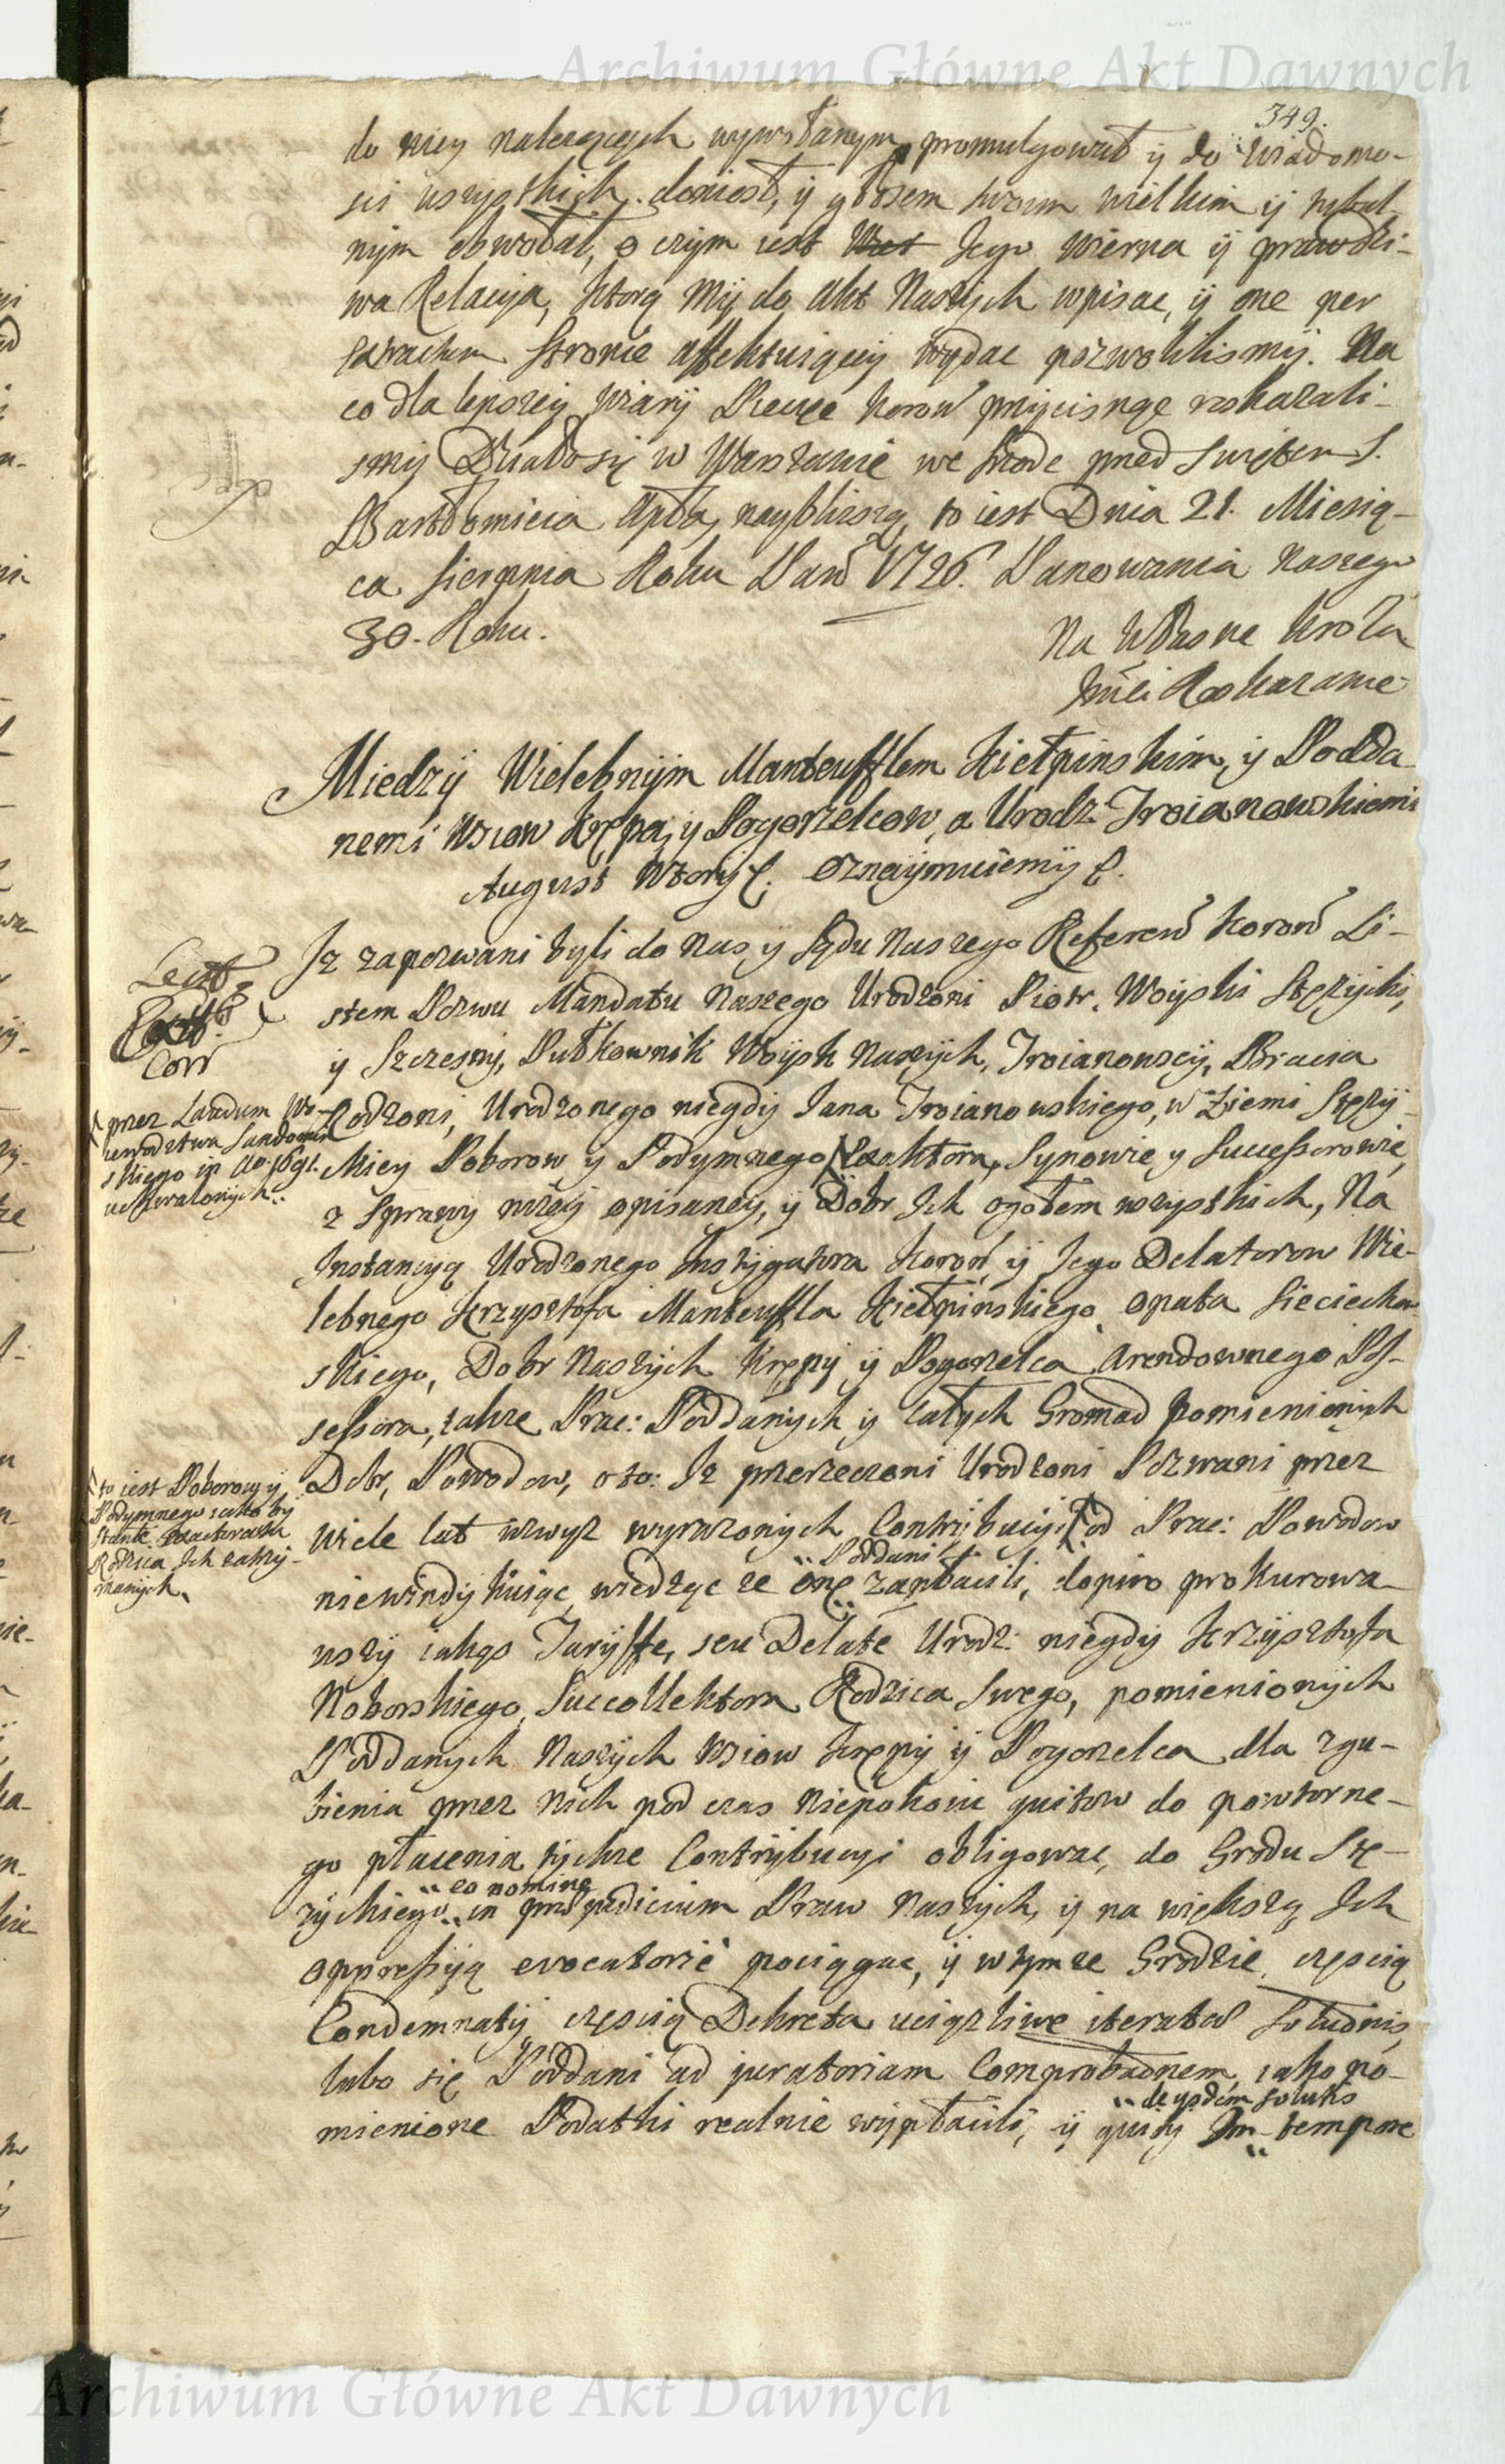 Archiwum Główne Akt Dawnych
349.
do niey należących wywołanym promulgował ÿ do wiadomo-
sci wszystkich doniosł, ÿ głosem swoim wielkim ÿ
nÿm obwołał, o czym iest Jego wierna ÿ prawdzi-
wa Relacyja, ktorą Mÿ do Akt Naszÿch wpisac, ÿ one per
extractum stronie affektuiącey wÿdac pozwolilismÿ. Na
co dla lepszey wiarÿ Piecżęc Koroń przÿcisnąc roskazali-
smÿ Działo się w Warszawie we srode przed swiętem S.
Bartłomieia Apła, nayblizszą, to iest Dnia 21. Miesią-
ca Sierpnia Roku Pań 1726. Panowania Naszego
30. Roku.
Na własne Krola
Jmci Roskazanie
Miedzÿ Wielebnÿm Manteufflem Kiełpinskim, ÿ Podda
nemi Wsiow Krępa, y Pogorzelcow, a Urodz Troianowskiemi
August Wtorÿ &. Oznaÿmuiemÿ &.
Iz zapozwani byli do Nas, y Sądu Naszego Referen Koroń Li-
stem Pozwu Mandatu Naszego Urodzoni Piotr. Woÿski Stęzÿcki,
ÿ Szczesnÿ, Pułkownik Woÿsk Naszÿch, Troianowscÿ, Bracia
Rodzoni, Urodzonego niegdÿ Jana Troianowskiego, w Ziemi Stęzÿ-
ckiey Poborow y Podymnego Exaktora, Synowie y Successorowie,
z Sprawÿ nizey opisaney, ÿ Dobr Ich ogołem wszystkich, Na
Instancyą Urodzonego Instÿgatora Koroń ÿ Jego Delatorow Wie-
lebnego Krzysztofa Manteuffla Kiełpinskiego Opata Sieciechow
skiego, Dobr Naszÿch Krępÿ ÿ Pogorzelca Arendownego Pos-
sessora, takze Prac: Poddanych ÿ całych Gromad pomienionÿch
Dobr, Powodow, oto: Iz przerzeczoni Urodzoni Pozwani przez
wiele lat wzwyz wyrazonych Contrÿbucÿi od Prac: Powodow
niewindÿkuiąc, wiedząc ze Poddani one zapłacili, dopiro prokurowa-
wszÿ iakąs Tarÿffe, seu Delate Urodz: niegdÿ Krzÿsztofa
Noborskiego Succollektora Rodzica Swego, pomienionÿch
Poddanych Naszÿch Wsiow Krępÿ ÿ Pogorzelca dla zgu-
bienia przez nich pod czas niepokoiu quitow do powtorne-
go płacenia tychze Contrÿbucyi obligowac, do Grodu Stę-
zÿckiego eo nomine in præjudicium Praw Naszÿch, ÿ na większą Ich
oppressÿą evocatorie pociągac, ÿ w tymze Grodzie częscią
Condemnatÿ częscią Dekreta uciązliwe iteratæ Solutionis,
lubo się Poddani ad juratoriam Comprobaonem, iako po-
mienione Podatki realnie wÿpłacili, ÿ quitÿ de iisdem solutis tempore
Lect
Corr
przez Laudum Wo-
iewodztwa Sandomir
skiego in Ao. 1691.
uchwalonÿch
to iest Poborow y
Podymnego iako by
Rodzica Ich zatrzÿ-
manÿch.
Archiwum Główne Akt Dawnych